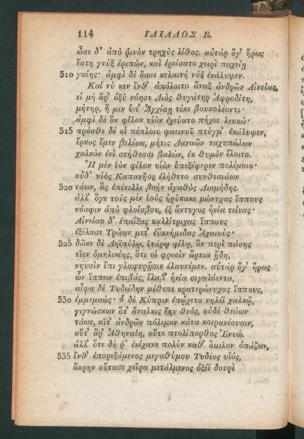 114 ΙΛΙΑΔΟΣ Ε.
ὦσε δ᾽ ἀπὸ ῥινὸν τρηχὺς λίθος. αὐτὰρ ὅγ᾽ ἥρως
ἔστη γνὺξ ἐριπών, καὶ ἐρείσατο χειρὶ παχείῃ
510 γαίης· ἀμφὶ δὲ ὄσσε κελαινὴ νὺξ ἐκάλυψεν.
Καὶ νύ κεν ἔνθ᾽ ἀπόλοιτο ἄναξ ἀνδρῶν Αἰνείας,
εἰ μὴ ἄρ᾽ ὀξὺ νόησε Διὸς θυγάτηρ Ἀφροδίτη,
μήτηρ, ἥ μιν ὑπ᾽ Ἀγχίσῃ τέκε βουκολέοντι·
ἀμφὶ δὲ ὃν φίλον υἱὸν ἐχεύατο πήχεε λευκώ·
515 πρόσθε δέ οἱ πέπλοιο φαεινοῦ πτύγμ᾽ ἐκάλυψεν,
ἕρκος ἔμεν βελέων, μήτις Δαναῶν ταχυπώλων
χαλκὸν ἐνὶ στήθεσσι βαλὼν, ἐκ θυμὸν ἕλοιτο.
Ἡ μὲν ἑὸν φίλον υἱὸν ὑπεξέφερεν πολέμοιο·
οὐδ᾽ υἱὸς Καπανῆος ἐλήθετο συνθεσιάων
520 τάων, ἃς ἐπέτελλε βοὴν ἀγαθὸς Διομήδης.
ἀλλ᾽ ὅγε τοὺς μὲν ἑοὺς ἠρύκακε μώνυχας ἵππους
νόσφιν ἀπὸ φλοίσβου, ἐξ ἄντυγος ἡνία τείνας·
Αἰνείαο δ᾽ ἐπαΐξας καλλίτριχας ἵππους
ἐξέλασε Τρώων μετ᾽ ἐϋκνήμιδας Ἀχαιούς·
525 δῶκε δὲ Δηϊπύλῳ, ἑτάρῳ φίλῳ, ὃν περὶ πάσης
τῖεν ὁμηλικίης, ὅτι οἱ φρεσὶν ἄρτια ᾔδη,
νηυσὶν ἔπι γλαφυρῇσιν ἐλαυνέμεν. αὐτὰρ ὅγ᾽ ἥρως
ὧν ἵππων ἐπιβὰς, ἔλαβ᾽ ἡνία σιγαλόεντα,
αἶψα δὲ Τυδείδην μέθεπε κρατερώνυχας ἵππους,
530 ἐμμεμαώς· ὁ δὲ Κύπριν ἐπῴχετο νηλέϊ χαλκῷ,
γιγνώσκων ὅτ᾽ ἄναλκις ἔην θεὸς, οὐδὲ θεάων
τάων, αἵτ᾽ ἀνδρῶν πόλεμον κάτα κοιρανέουσιν,
οὔτ᾽ ἄρ᾽ Ἀθηναίη, οὔτε πτολίπορθος Ἐνυώ.
ἀλλ᾽ ὅτε δή ῥ᾽ ἐκίχανε πολὺν καθ᾽ ὅμιλον ὀπάζων,
535 ἔνθ᾽ ἐπορεξάμενος μεγαθύμου Τυδέος υἱός,
ἄκρην οὔτασε χεῖρα μετάλμενος ὀξέϊ δουρὶ